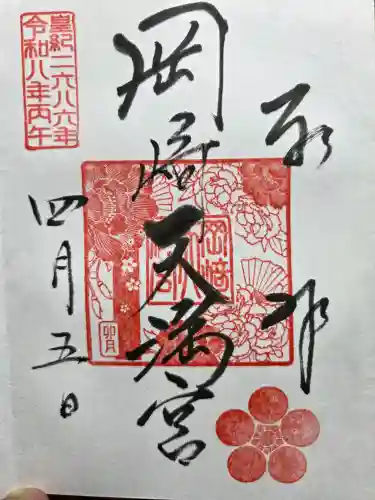 奉拝
岡崎天満宮
岡﨑天満宮
卯月
皇紀二六八六年
令和八年丙午
四月五日